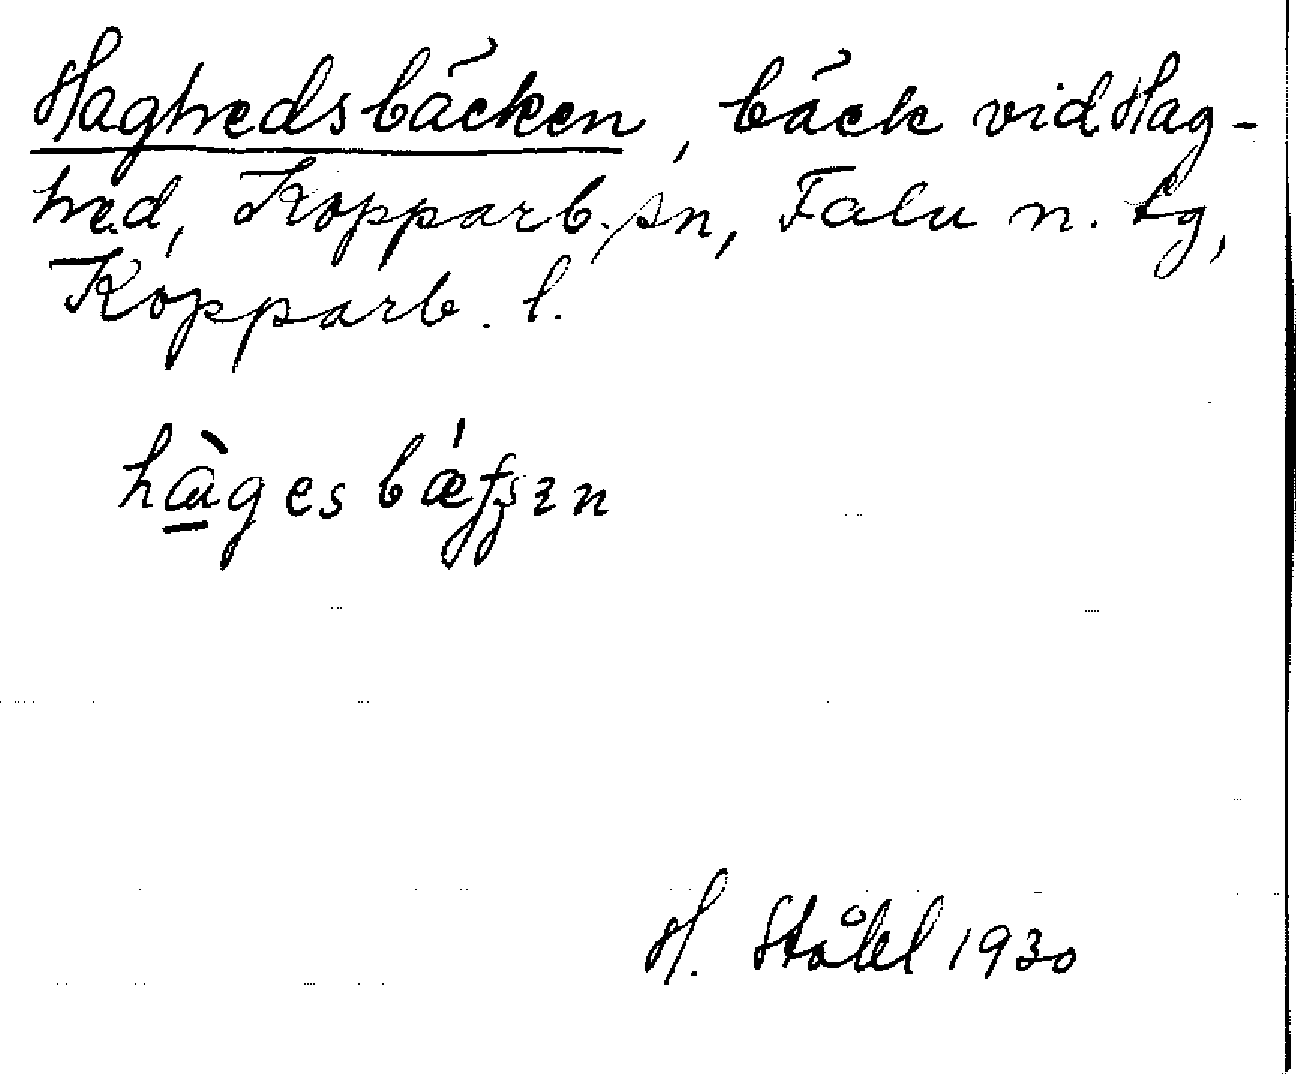 Haghedsbäcken, bäck vid Hag-
hed, Kopparb. sn, Falu n. tg,
Kopparb. l.
H. Ståhl 1930